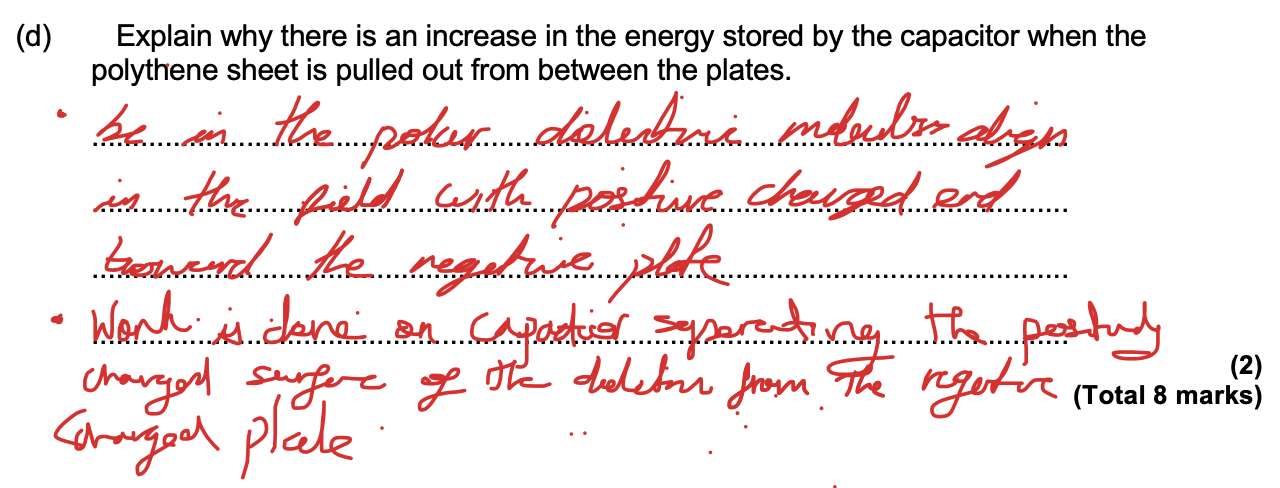 (d) Explain why there is an increase in the energy stored by the capacitor when the
polythene sheet is pulled out from between the plates.
• be in the polar dielectric molecules align
in the field with positive charged end
toward the negative plate
• Work is done on capacitor separating the positively
charged surface of the dielectric from the negative
(2)
(Total 8 marks)
charged plate